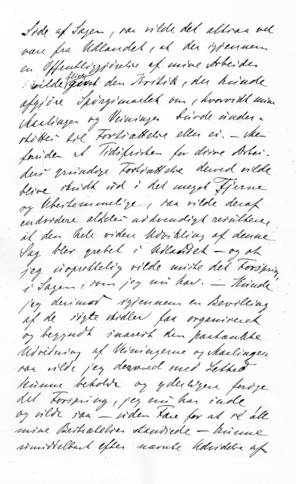 Side af Sagen, saa vilde det altsaa vel
være fra Udlandet, at der igjennem
en Offentliggjørelse af mine Arbeider
vilde givet den Kritik, der kunde
afgjøre Spørgsmaalet om, hvorvidt mine
Maalinger og Veininger burde under-
støttes til Fortsættelse eller ei. — Men
foruden at Tidsfristen for disse Arbei-
ders grundige Fortsættelse derved vilde
blive skudt ud i det meget Fjerne
og Ubestemmelige, saa vilde deraf
endvidere aldeles nødvendigt resultere,
at den hele videre Udvikling af denne
Sag blev grebet i Udlandet — og at
jeg uopretteligt vilde miste det Forspring
i Sagen, som jeg nu har. — Kunde
jeg derimod igjennem en Bevilling
af de søgte Midler faa organiseret
og begyndt snarest den paatænkte
Udvidning af Veiningerne og Maalingerne
saa vilde jeg derved med Lethed
kunne beholde og yderligere forøge
det Forspring, jeg nu har inde,
og vilde saa — uden Fare for at se alle
mine Bestræbelser standsede — kunne
umiddelbart efter nævnte Udvidelse af